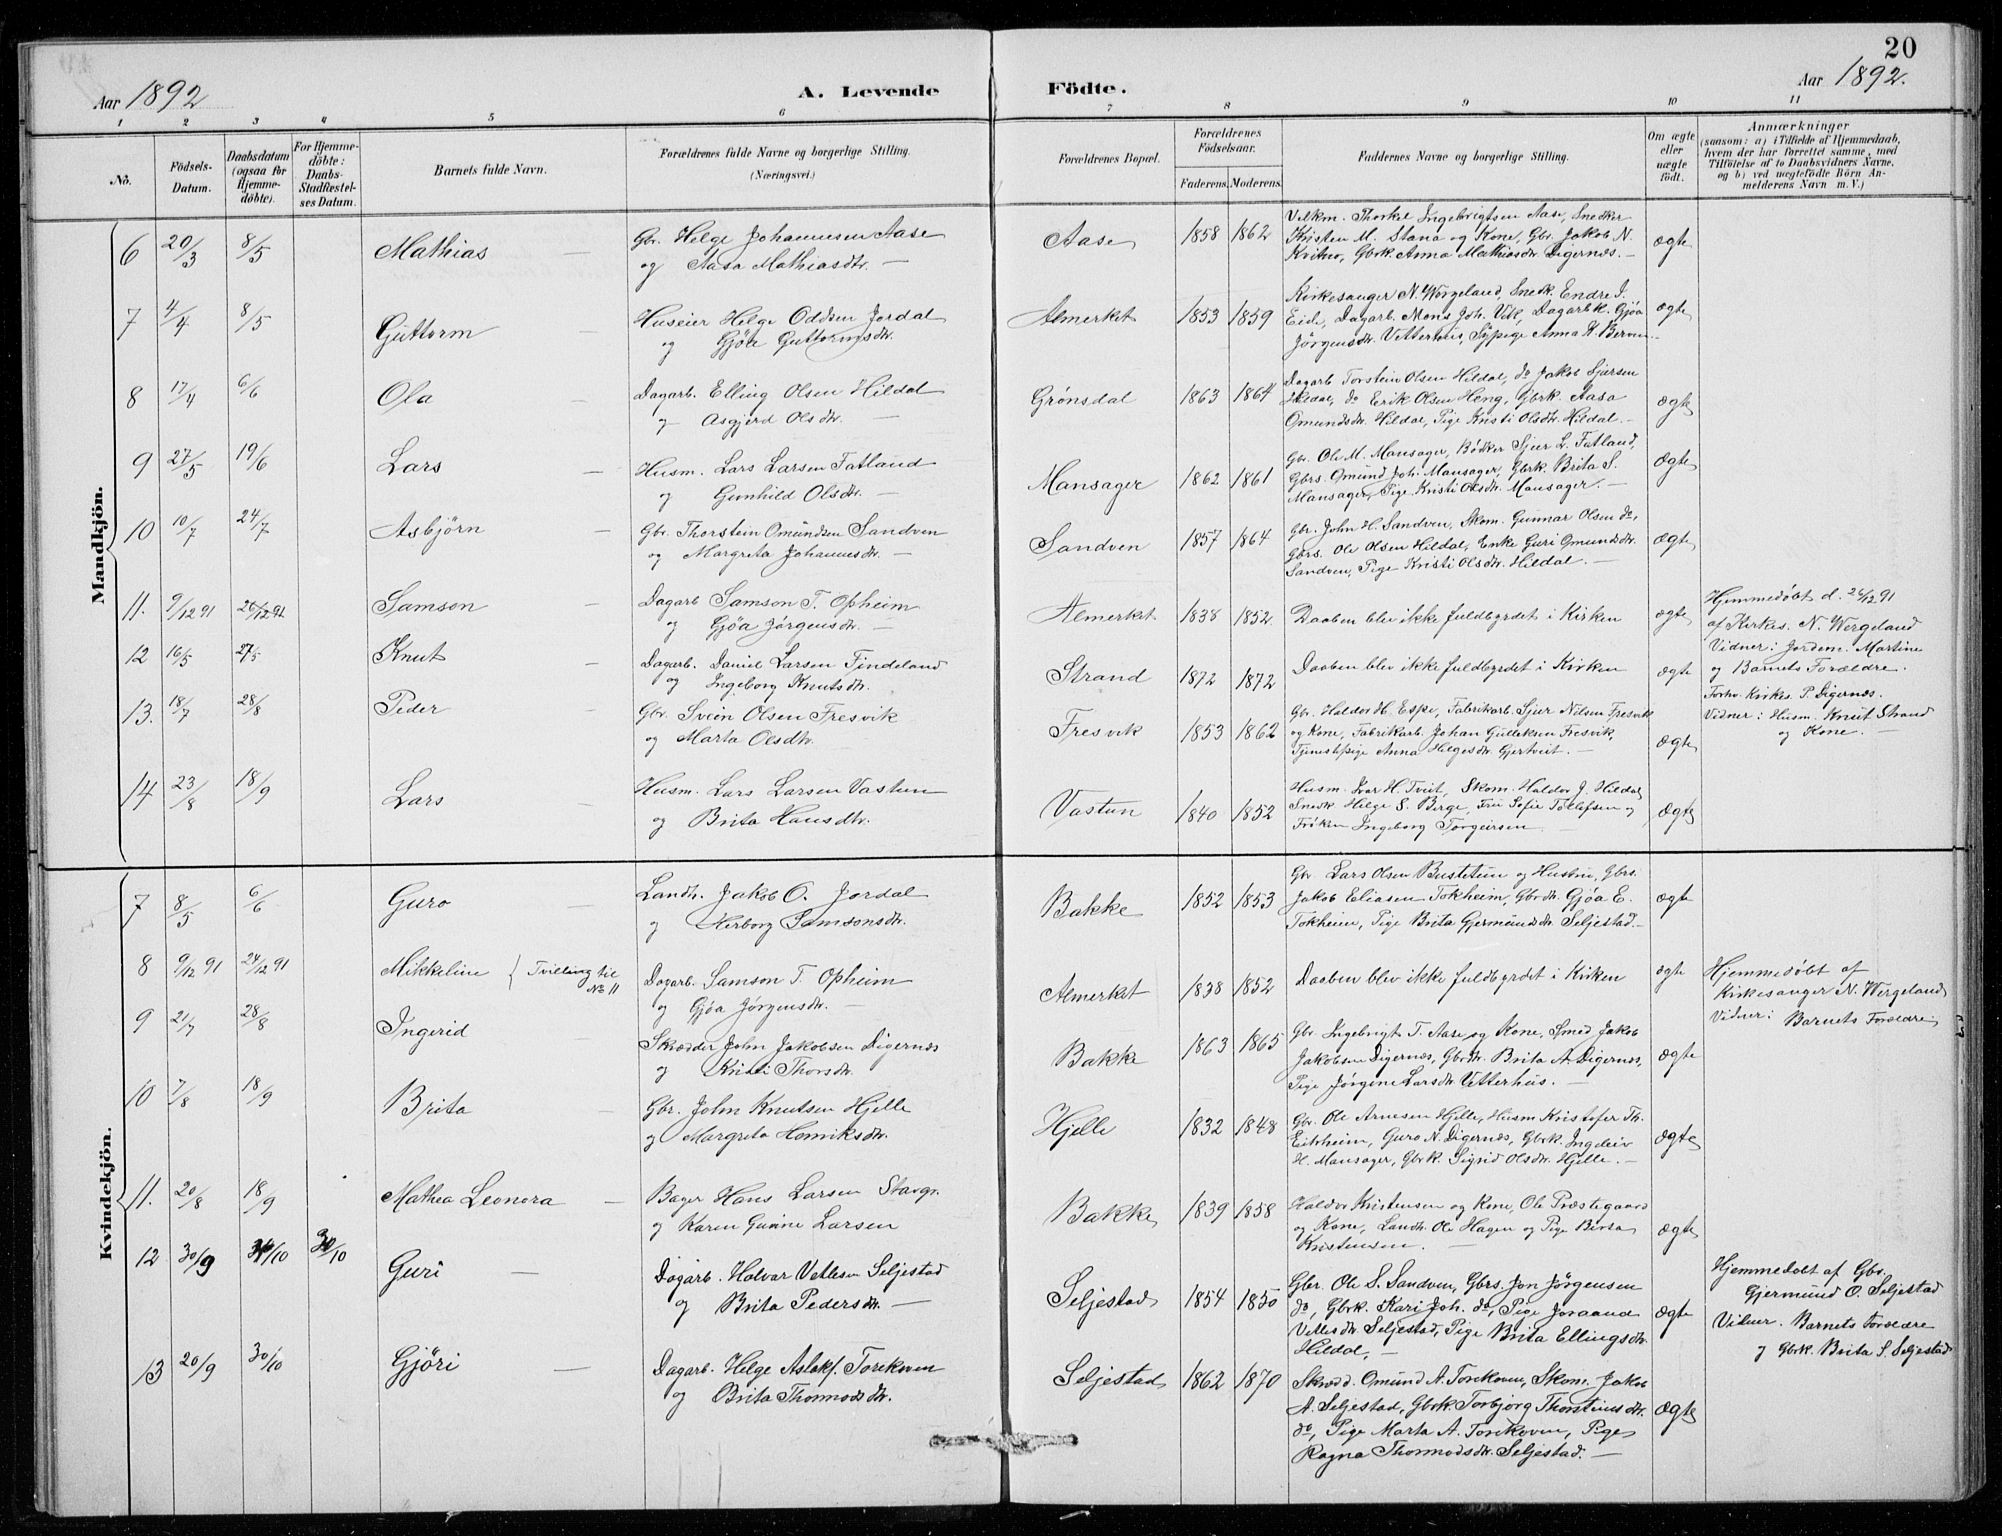 20
Aar 1892 A. Levende Födte. Aar 1892.
1 2 3 4 5 6 7 8 9 10 11
No. Födsels-Datum. Daabsdatum (ogsaa for Hjemmedöbte). For Hjemmedöbte: Daabs-Stadfæstelses Datum. Barnets fulde Navn. Forældrenes fulde Navne og borgerlige Stilling. (Næringsvei.) Forældrenes Bopæl. Forældrenes Födselsaar. Faderens. Moderens. Faddernes Navne og borgerlige Stilling. Om ægte eller uægte födt. Anmærkninger (saasom: a) i Tilfælde af Hjemmedaab, hvem der har forrettet samme, med Tilföielse af to Daabsvidners Navne, og b) ved uægtefödte Börn Anmelderens Navn m. V.)
Mandkjön.
6 20/3 8/5 Mathias Gbr. Helge Johannesen Aase
og Aasa Mathiasdtr. Aase 1858 1862 Thorkel Ingebrigtsen Aase, Snedker
Kristen M. Stana og Kone, Gbr. Jakob N.
Gbrk. Anna Mathiasdtr. Digernes. ægte
7 4/4 8/5 Guttorm Huseier Helge Oddsen Jordal
og Gjöle Guttormsdtr. Almerket 1853 1859 Kirkesanger N. Wergeland, Snedk. Endre J.
Eide, Dagarb. Mons Joh. Vik, Dagarbk. Gjöa
Jörgensdtr. Vetterhus, Sypige Anna K. Berven. ægte
8 17/4 6/6 Ola Dagarb. Elling Olsen Hildal
og Asgjerd Olsdtr. Grönsdal 1863 1864 Dagarb Torstein Olsen Hildal, do Jakob Sjursen
Hildal, do Erik Olsen Heng, Gbrk. Aasa
Omundsdtr. Hildal, Pige Kristi Olsdtr. Hildal. ægte
9 27/5 19/6 Lars Husm. Lars Larsen Tatland
og Gunhild Olsdtr. Mansager 1862 1861 Gbr. Ole M. Mansager, Bödker Sjur L. Tatland,
Gbrs. Omund Joh. Mansager, Gbrk. Brita S.
Mansager, Pige Kristi Olsdtr. Mansager. ægte
10 10/7 24/7 Asbjörn Gbr. Thorstein Omundsen Sandven
og Margreta Johannesdtr. Sandven 1857 1864 Gbr. John H. Sandven, Skom. Gunnar Olsen do,
Gbrs. Ole Olsen Hildal, Enke Guri Omundsdtr.
Sandven, Pige Kristi Olsdtr. Hildal. ægte
11. 9/12 91 26/12 91 Samson Dagarb Samson T. Opheim
og Gjöa Jörgensdtr. Almerket 1838 1852. Daaben blev ikke fuldbyrdet i Kirken ægte Hjemmedöbt d. 26/12 91
af Kirkes. N. Wergeland
Vidner: Jordem. Martine
og Barnets Forældre.
12 16/5 27/5 Knut Dagarb. Daniel Larsen Findeland
og Ingeborg Knutsdtr. Strand 1872 1872 Daaben blev ikke fuldbyrdet i Kirken ægte Forhv. Kirkes. P. Digernes.
Vidner: Husm. Knut Strand
og Kone.
13. 18/7 28/8 Peder Gbr. Svein Olsen Fresvik
og Marta Olsdtr. Fresvik 1853 1862 Gbr. Haldor H. Espe, Fabrikarb. Sjur Nilsen Fresvik
og Kone, Fabrikarb. Johan Gulleksen Fresvik,
Tjenestpige Anna Helgesdtr. Gjertveit. ægte
14 23/8 18/9 Lars Husm. Lars Larsen Vastun
og Brita Hansdtr. Vastun 1840 1852 Husm. Ivar H. Tveit, Skom. Haldor J. Hildal
Snedk Helge S. Berge, Fru Sofie Tollefsen og
Fröken Ingeborg Torgeirsen ægte
Kvindekjön.
7 8/5 6/6 Guro Landh. Jakob O. Jordal
og Herborg Samsonsdtr. Bakke 1852 1853 Gbr Lars Olsen Bustetun og Hustru, Gbrs.
Jakob Eliasen Tokheim, Gbrdtr. Gjöa E.
Tokheim, Pige Brita Gjermundsdtr Seljestad. ægte
8 9/12 91 24/12 91 Mikkeline Tvilling til No 11 Dagarb. Samson T. Opheim
og Gjöa Jörgensdtr. Almerket 1838 1852 Daaben blev ikke fuldbyrdet i Kirken ægte Hjemmedöbt af
Kirkesanger N. Wergeland
Vidner: Barnets Forældre
9 21/7 28/8 Ingerid Skrædder John Jakobsen Digernes
og Kristi Thorsdtr. Bakke 1863 1865 Gbr Ingebrigt T. Aase og Kone, Smed Jakob
Jakobsen Digernes, Gbrdtr. Brita A. Digernes,
Pige Jörgine Larsdtr Vetterhus. ægte
10 7/8 18/9 Brita Gbr. John Knutsen Hjelle
og Margreta Henriksdtr. Hjelle 1832 1848 Gbr. Ole Arnesen Hjelle, Husm Kristofer Th.
Eitrheim, Guro N. Digernes, Gbrk. Ingeleiv
H. Mansager, Gbrk. Sigrid Olsdtr. Hjelle. ægte
11. 20/8 18/9 Mathea Leonora Bager Hans Larsen Stavgr.
og Karen Gurine Larsen Bakke 1839 1858 Haldor Kristensen og Kone, Ole Præstegaard
og Kone, Landh. Ole Hagen og Pige Berta
Kristensen. ægte
12 30/9 /10 30/10 Guri Dagarb. Halvar Vetlesen Seljestad
og Brita Pedersdtr. Seljestad 1854 1850 Gbr. Ole S. Sandven, Gbrs. Jon Jörgensen
do, Gbrk. Kari Joh. do, Pige Joraand
Vetlesdtr Seljestad, Pige Brita Ellingsdtr.
Hildal. ægte Hjemmedöbt af Gbr.
Gjermund O. Seljestad
Vidner. Barnets Forældre
og Gbrk. Brita S. Seljestad
13 20/9 30/10 Gjöri Dagarb. Helge Aslaks. Torekoven
og Brita Thormodsdtr. Seljestad 1862 1870 Skrædd. Omund A. Torekoven, Skom. Jakob
A. Seljestad, Gbrk. Torbjörg Thorsteinsdtr.
do, Pige Marta A. Torekoven, Pige
Ragna Thormodsdtr. Seljestad. ægte